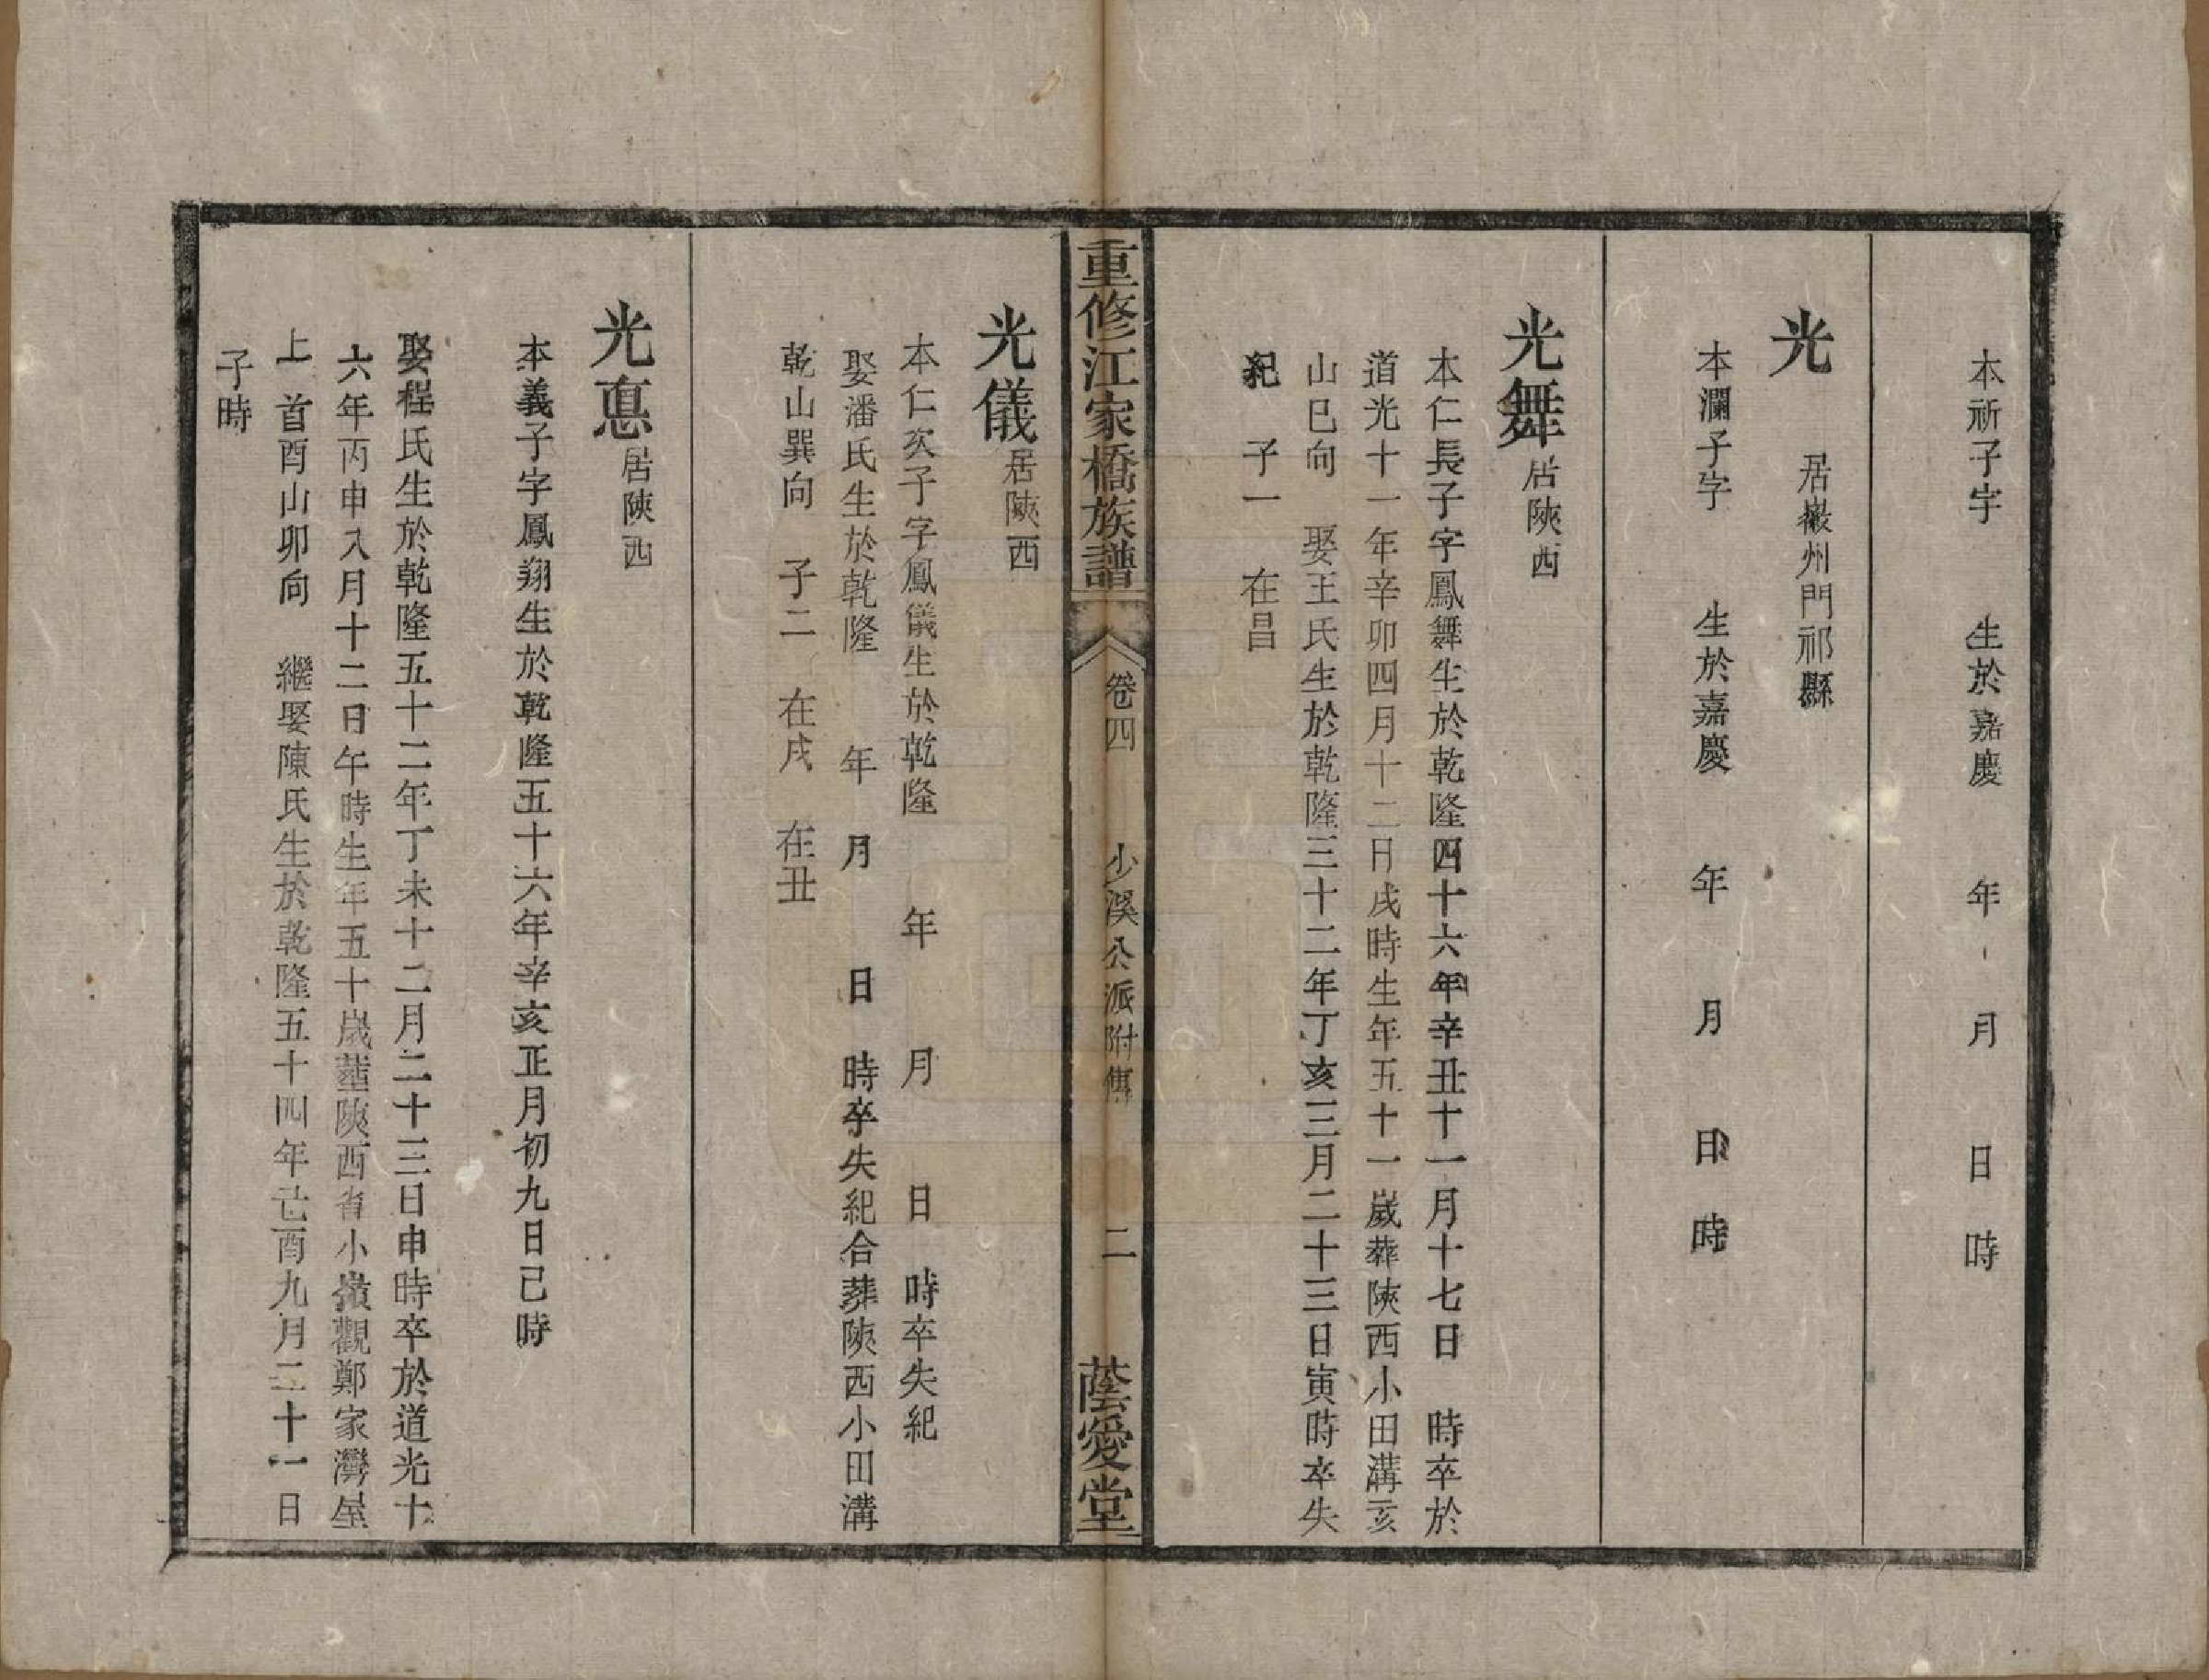 本祈子字　生於嘉慶　年　月　日　時
光　居徽州門祁縣
本瀾子字　生於嘉慶　年　月　日　時
光舞居陝西
本仁長子字鳳舞生於乾隆四十六年辛丑十一月十七日　時卒於
道光十一年辛卯四月十二日戌時生年五十一歲葬陝西小田溝亥
山巳向　娶王氏生於乾隆三十二年丁亥三月二十三日寅時卒失
紀　子一　在昌
重修江家橋族譜　卷四　少溪公派附傳　二　蔭愛堂
光儀居陝西
本仁次子字鳳儀生於乾隆　年　月　日　時卒失紀
娶潘氏生於乾隆　年　月　日　時卒失紀合葬陝西小田溝
乾山巽向　子二　在戌　在丑
光悳居陝西
本義子字鳳翔生於乾隆五十六年辛亥正月初九日己時
娶程氏生於乾隆五十二年丁未十二月二十三日申時卒於道光十
六年丙申入月十二日午時生年五十歲塟陝西省小嶺觀鄭家灣屋
上首酉山卯向　繼娶陳氏生於乾隆五十四年己酉九月二十一日
子時